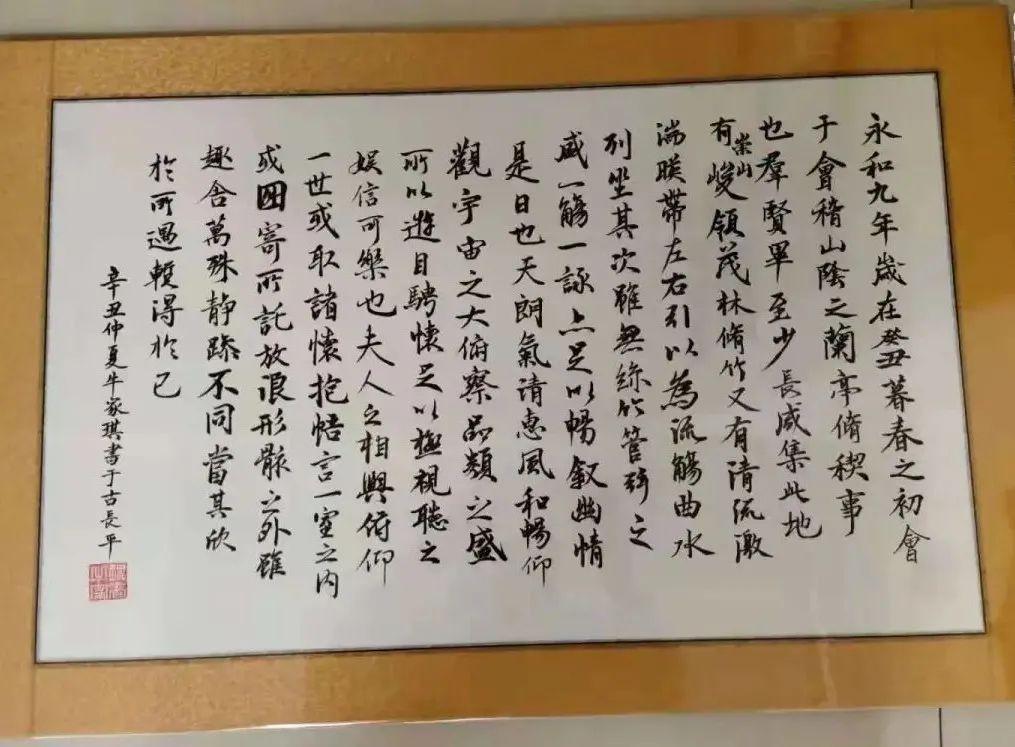 永和九年歲在癸丑暮春之初會
于會稽山陰之蘭亭脩稧事
也羣賢畢至少長咸集此地
有崇山峻領茂林脩竹又有清流激
湍暎帶左右引以為流觴曲水
列坐其次雖無絲竹管弦之
盛一觴一詠亦足以暢敘幽情
是日也天朗氣清惠風和暢仰
觀宇宙之大俯察品類之盛
所以遊目騁懷足以極視聽之
娛信可樂也夫人之相與俯仰
一世或取諸懷抱悟言一室之內
或因寄所託放浪形骸之外雖
趣舍萬殊静躁不同當其欣
於所遇蹔得於己
辛丑仲夏牛家琪書于古長平